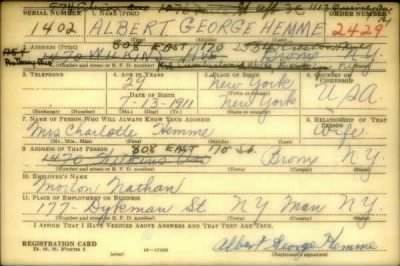 SERIAL NUMBER 1. NAME (Print) ORDER NUMBER
1402 ALBERT GEORGE HEMME 2429
2. ADDRESS (Print)
808 EAST 170
1470 Bronx N.Y.
(Number and street or R. F. D. number) (Town) (County) (State)
3. TELEPHONE 4. AGE IN YEARS 5. PLACE OF BIRTH 6. COUNTRY OF CITIZENSHIP
29 New York
DATE OF BIRTH
7-13-1911 New York USA
(Exchange) (Number) (Mo.) (Day) (Yr.) (State or country)
7. NAME OF PERSON WHO WILL ALWAYS KNOW YOUR ADDRESS 8. RELATIONSHIP OF THAT PERSON
Mrs Charlotte Hemme Wife
(Mr., Mrs., Miss) (First) (Middle) (Last)
9. ADDRESS OF THAT PERSON 808 EAST 170 St.
1470 Wilkins Ave Bronx N.Y.
(Number and street or R. F. D. number) (Town) (County) (State)
10. EMPLOYER'S NAME
Morton Nathan
11. PLACE OF EMPLOYMENT OR BUSINESS
177 - Dykman St NY Man N.Y.
(Number and street or R. F. D. number) (Town) (County) (State)
I AFFIRM THAT I HAVE VERIFIED ABOVE ANSWERS AND THAT THEY ARE TRUE.
REGISTRATION CARD
D. S. S. Form 1 Albert George Hemme